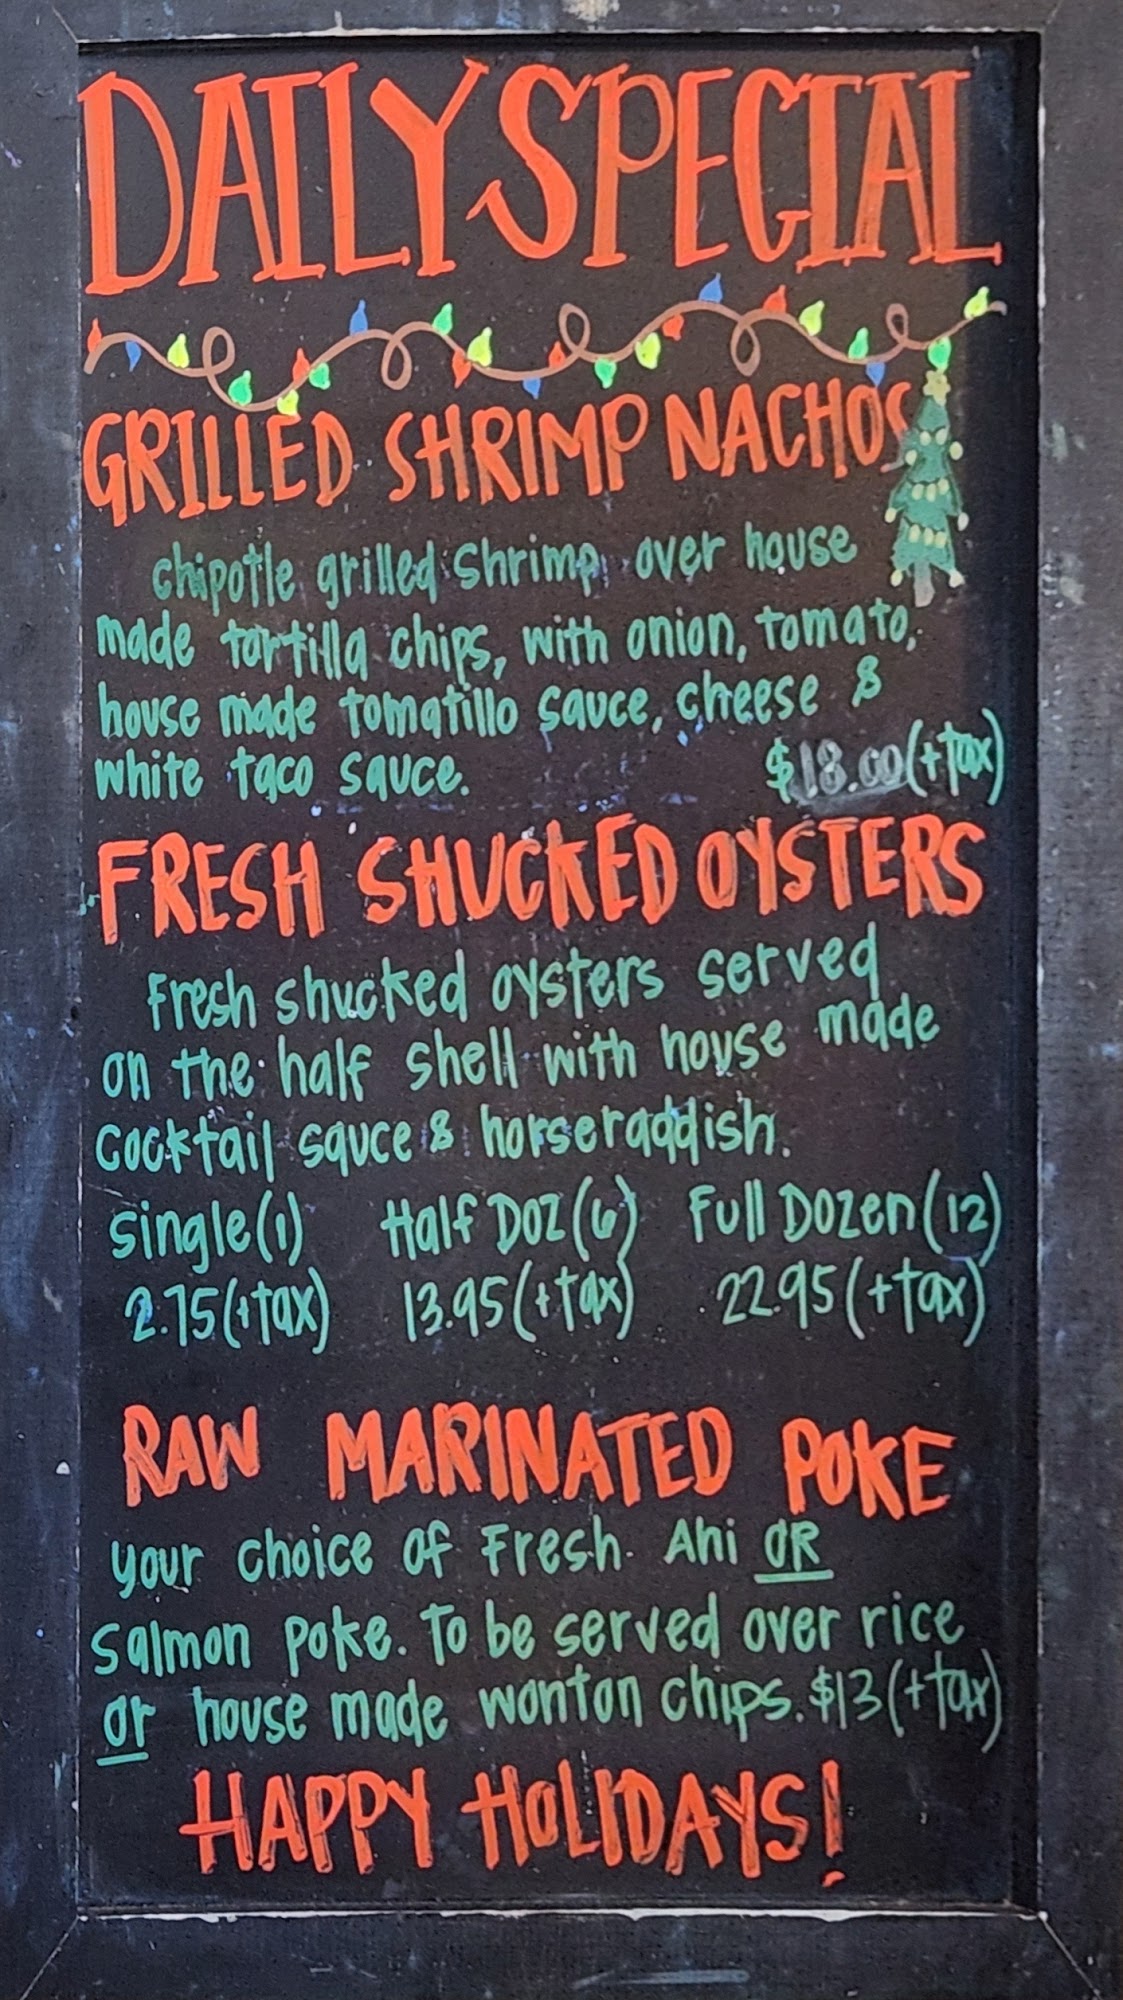 DAILY SPECIAL
GRILLED SHRIMP NACHOS
chipotle grilled shrimp over house
made tortilla chips, with onion, tomato,
house made tomatillo sauce, cheese &
white taco sauce. $18.00 (+tax)
FRESH SHUCKED OYSTERS
Fresh shucked oysters served
on the half shell with house made
cocktail sauce & horseraddish.
Single (1) Half Doz (6) Full Dozen (12)
2.75 (+tax) 13.95 (+tax) 22.95 (+tax)
RAW MARINATED POKE
your choice of Fresh Ahi OR
Salmon poke. To be served over rice
or house made wonton chips. $13 (+tax)
HAPPY HOLIDAYS!